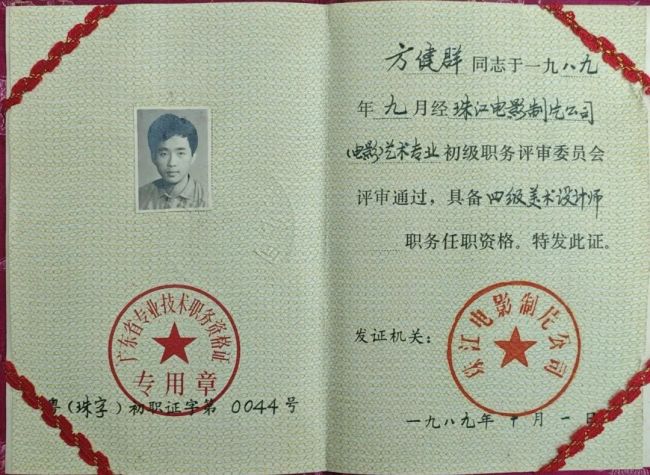 广东省专业技术职务资格证
专用章
粤(珠字)初职证字第 0044 号
方健群 同志于一九八九
年九月经 珠江电影制片公司
(电影)艺术专业 初级职务评审委员会
评审通过，具备 四级美术设计师
职务任职资格。特发此证。
发证机关：
珠江电影制片公司
一九八九年十月一日